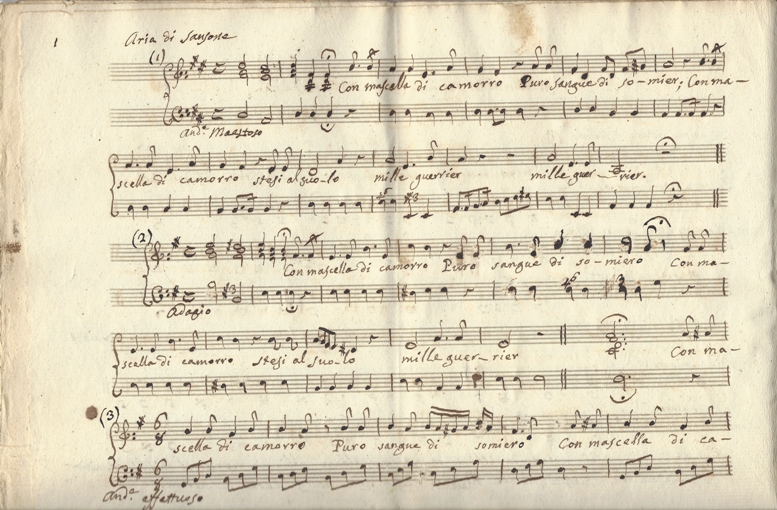 1
Aria di Sansone
(1)
Con mascella di camorro Puro sangue di so-mier; Con ma-
And.e Maestoso
scella di camorro stesi al suo-lo mille guerrier mille guer-rier.
(2)
Con mascella di camorro Puro sangue di so-miero Con ma-
Adagio
scella di camorro stesi al suo-lo mille guer-rier Con ma-
(3)
6 8
scella di camorro Puro sangue di somiero Con mascella di ca-
6 8
And.e affettuoso